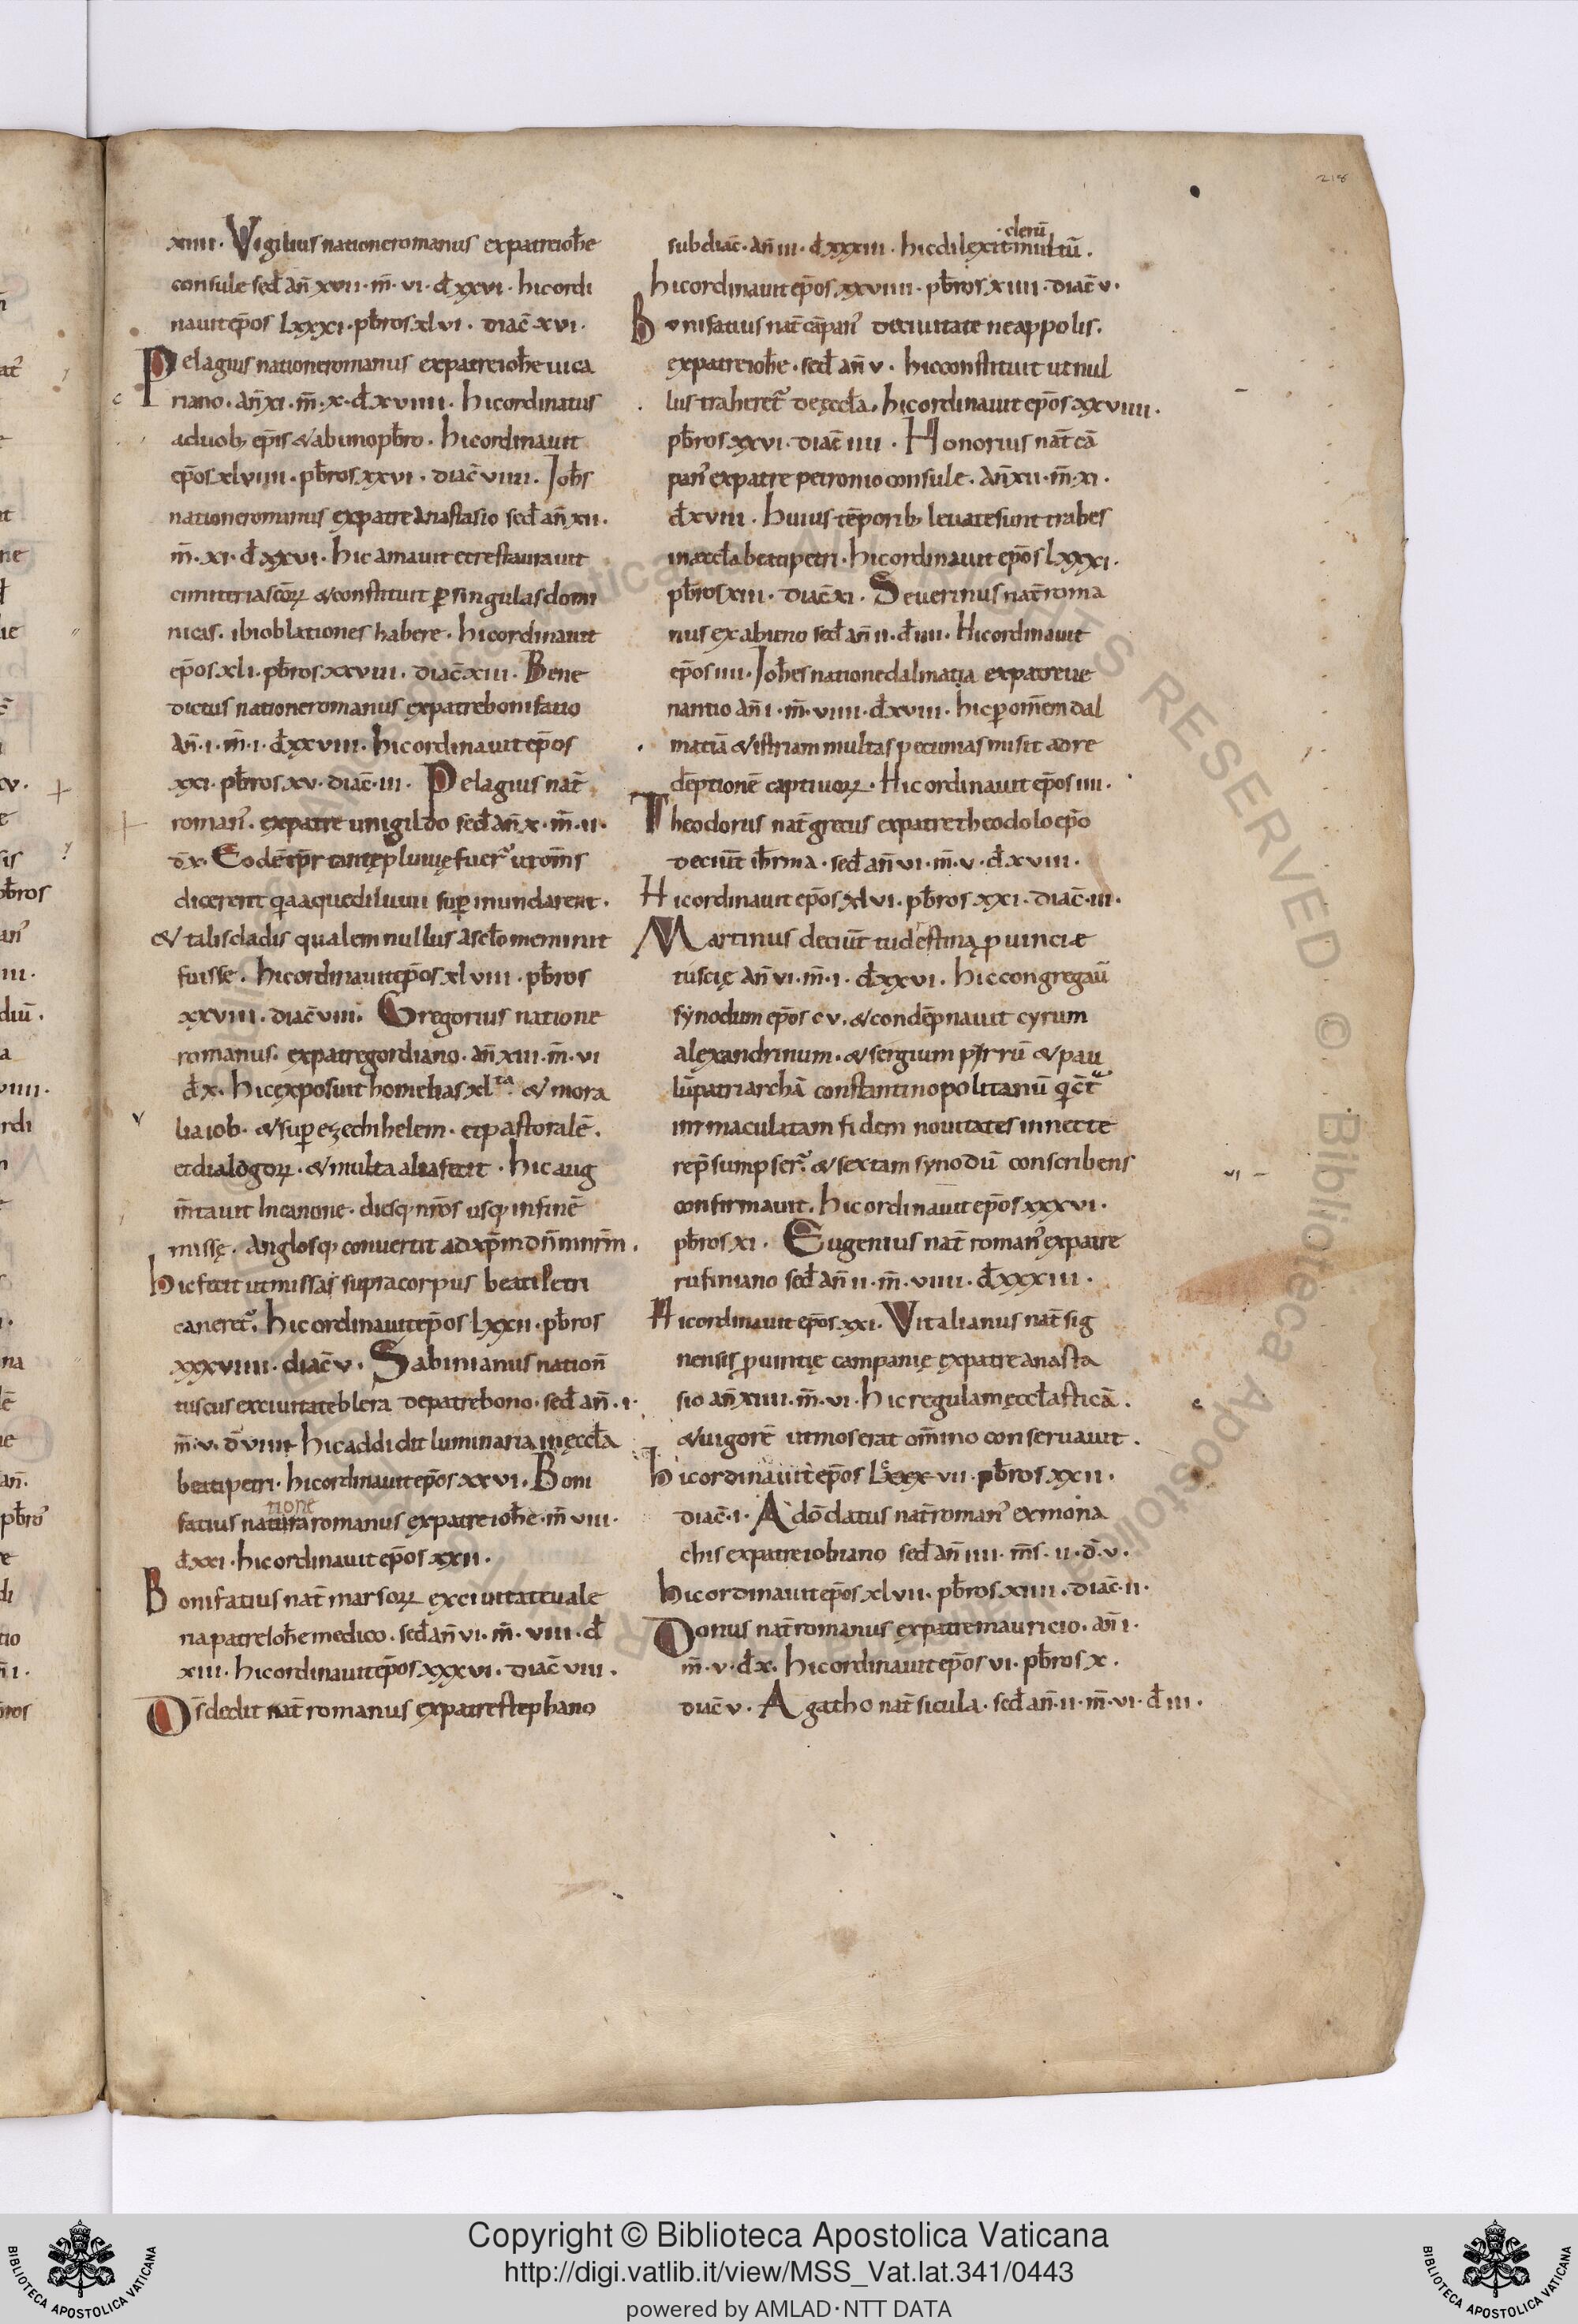 218
xiiii. Vigilius natione romanus ex patre ioh̄e
consule sed̄ an̄ xvii. m̄. vi. d̄ xxvi. hic ordi
nauit ep̄os lxxxi. pb̄ros xlvi. diac̄ xvi.
Pelagius natione romanus ex patre ioh̄e uica
riano. an̄ xi. m̄. x. d̄ xviiii. hic ordinatus
a duob; ep̄is & ab uno pb̄ro. hic ordinauit
ep̄os xlviiii. pb̄ros xxvi. diac̄ viiii. Joh̄s
natione romanus ex patre anastasio sed̄ an̄ xii.
m̄. xi. d̄ xxvi. hic amauit et restaurauit
cimiteria sc̄oꝝ & constituit ꝑ singulas domi
nicas. ibi oblationes habere. hic ordinauit
ep̄os xli. pb̄ros xxviii. diac̄ xiii. Bene
dictus natione romanus ex patre bonifatio
an̄. i. m̄. i. d̄ xxviii. hic ordinauit ep̄os
xxi. pb̄ros xv. diac̄. iii. Pelagius nat̄
roman᾽. ex patre unigildo sed̄ an̄ x. m̄. ii.
d̄ x. Eodē tp̄r tantę pluuię fuer̄ ut om̄s
dicerent q̇a aque diluuii sup̱ inundarent.
& talis cladis qualem nullus a sc̄lo meminit
fuisse. hic ordinauit ep̄os xlviii. pb̄ros
xxviii. diac̄ viii. Gregorius natione
romanus. ex patre gordiano. an̄ xiii. m̄. vi
d̄ x. hic exposuit homelias xl ta. & mora
lia iob. & sup̱ ezechihelem. et pastoralē.
et dialogoꝝ. & multa alia fecit. hic aug
m̄tauit in canone. diesq; nr̄os usq; in finē
missę. anglosq; conuertit ad xp̄m dn̄m nr̄m.
hic fecit ut missas supra corpus beati Petri
caneret᷒. hic ordinauit ep̄os lxxii. pb̄ros
xxxviiii. diac̄ v. Sabinianus nation̄
tuscus ex ciuitate blera de patre bono. sed̄ an̄. i.
m̄. v. d̄ viiii hic addidit luminaria in ęccl̄a
beati petri. hic ordinauit ep̄os xxvi. Boni
tione
fatius natura romanus ex patre ioh̄e. m̄ viii.
d̄ xxi. hic ordinauit ep̄os xxii.
Bonifatius nat̄ marsoꝝ ex ciuitate uale
na patre ioh̄e medico. sed̄ an̄ vi. m̄. viii. d̄
xiii. hic ordinauit ep̄os xxxvi. diac̄ viii.
Ds̄dedit nat̄ romanus ex patre stephano
clerū
subdiac̄. an̄ iii. d̄ xxxiii. hic dilexit multū.
hic ordinauit ep̄os xxviiii. pb̄ros xiiii. diac̄ v.
Bonifatius nat̄ cāpan᾽ de ciuitate neappolis.
ex patre ioh̄e. sed̄ an̄ v. hic constituit ut nul
lus traheret᷒ de ęccl̄a. hic ordinauit ep̄os xxviiii.
pb̄ros xxvi. diac̄ iiii. Honorius nat̄ cā
pan᾽ ex patre petronio consule. an̄ xii. m̄. xi.
d̄ xviii. huius tēporib; leuate sunt trabes
in aeccl̄a beati petri. hic ordinauit ep̄os lxxxi.
pb̄ros xiii. diac̄ xi. Seuerinus nat̄ roma
nus ex abieno sed̄ an̄ ii. d̄ iiii. Hic ordinauit
ep̄os iiii. Joh̄es natione dalmatia ex patre ue
nantio an̄ i. m̄. viiii. d̄ xviii. hic ꝑ om̄em dal
matiā & istriam multas pecunias misit ad re
dēptionē captiuoꝝ. Hic ordinauit ep̄os iiii.
Theodorus nat̄ grecus ex patre theodolo ep̄o
de ciuit̄ ib̄rma. sed̄ an̄ vi. m̄. v. d̄ xviii.
Hic ordinauit ep̄os xlvi. pb̄ros xxi. diac̄. iii.
Martinus de ciuit̄ tudestina ꝓuinciæ
tuscię an̄ vi. m̄. i. d̄ xxvi. hic congregau̅
synodum ep̄os cv. & condēpnauit cyrum
alexandrinum. & sergium pirrū & pau
lū patriarchā constantinopolitanū q̇ c̄t
immaculatam fidem nouitates innecte
re p̄sumpser̄. & sextam synodū conscribens
confirmauit. hic ordinauit ep̄os xxxvi.
pb̄ros xi. Eugenius nat̄ roman᾽ ex patre
rufiniano sed̄ an̄ ii. m̄. viiii. d̄ xxxiii.
Hic ordinauit ep̄os xxi. Vitalianus nat̄ sig
nensis ꝓuintię campanię ex patre anasta
sio an̄ xiiii. m̄. vi. hic regulam ęccl̄asticā.
& uigorē ut mos erat om̄ino conseruauit.
hic ordinauit ep̄os lxxxvii. pb̄ros xxii.
diac̄. i. Adōdatus nat̄ roman᾽ ex mona
chis ex patre iobiano sed̄ an̄ iiii. m̄s. ii. d̄. v.
hic ordinauit ep̄os xlvii. pb̄ros xiiii. diac̄. ii.
Donus nat̄ romanus ex patre mauricio. an̄ i.
m̄. v. d̄ x. hic ordinauit ep̄os vi. pb̄ros x.
diac̄ v. Agatho nat̄ sicula. sed̄ an̄. ii. m̄. vi. d̄ iii.
Copyright © Biblioteca Apostolica Vaticana
http://digi.vatlib.it/view/MSS_Vat.lat.341/0443
powered by AMLAD·NTT DATA
BIBLIOTECA APOSTOLICA VATICANA
BIBLIOTECA APOSTOLICA VATICANA